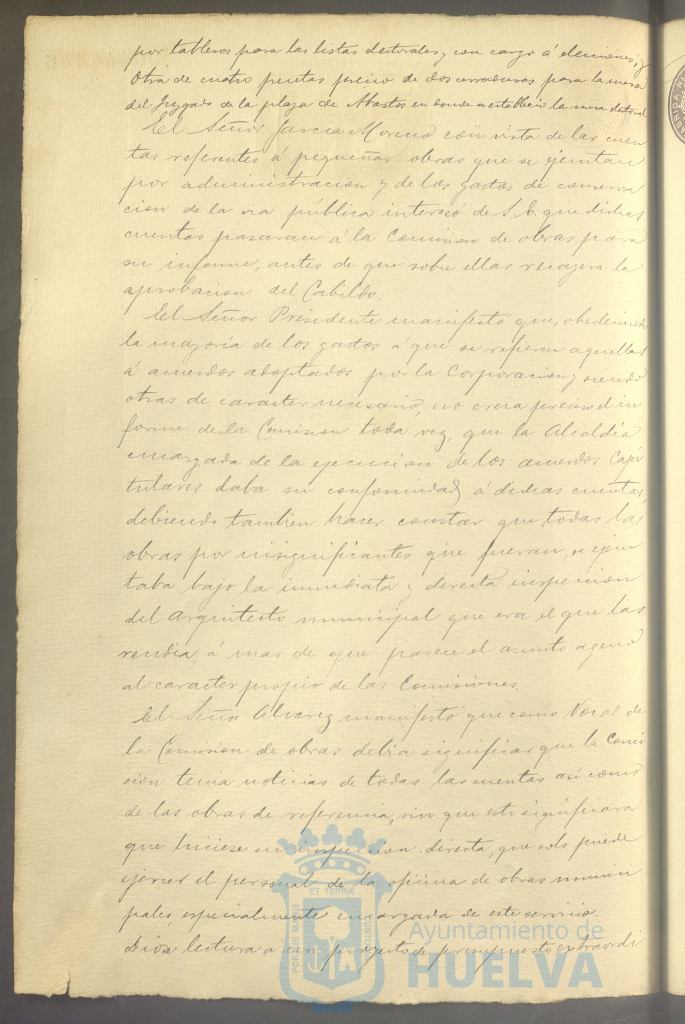 por tableros para las listas electorales, con cargo á elecciones; y
otra de cuatro pesetas precio de dos cerraduras para la mesa
del Juzgado de la plaza de Abastos en donde se estableció la mesa electoral
El Señor García Moreno con vista de las cuen
tas referentes á pequeñas obras que se ejecutan
por administracion y de los gastos de conserva
cion de la via pública interesó de S.E. que dichas
cuentas pasaran á la Comision de obras para
su informe, antes de que sobre ellas recayera la
aprobacion del Cabildo.
El Señor Presidente manifestó que, obedeciendo
la mayoria de los gastos á que se refieren aquellas
á acuerdos adoptados por la Corporacion y siendo
otras de caracter necesario, no creia preciso el in
forme de la Comision toda vez, que la Alcaldía
encargada de la ejecucion de los acuerdos Capi
tulares daba su conformidad á dichas cuentas,
debiendo tambien hacer constar que todas las
obras por insignificantes que fueran, se ejecu
taba bajo la inmediata y directa inspeccion
del Arquitecto municipal que era el que las
rendia á mas de que parece el asunto ageno
al caracter propio de las Comisiones.
El Señor Alvarez manifestó que como Vocal de
la Comision de obras debia significar que la Comi
sion tenia noticias de todas las cuentas asi como
de las obras de referencia, sin que esto significara
que hiciese su inspeccion directa, que solo puede
ejercer el personal de la oficina de obras munici
pales, especialmente encargada de este servicio.
Diose lectura a un proyecto de presupuesto extraordi
PORTUS MARIS
ET TERRÆ
CUSTODIA
Ayuntamiento de
HUELVA